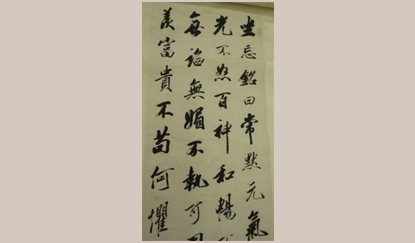 坐忘銘曰常默元氣
光不怒百神和暢
無諂無媚不執可
富貴不苟何懼